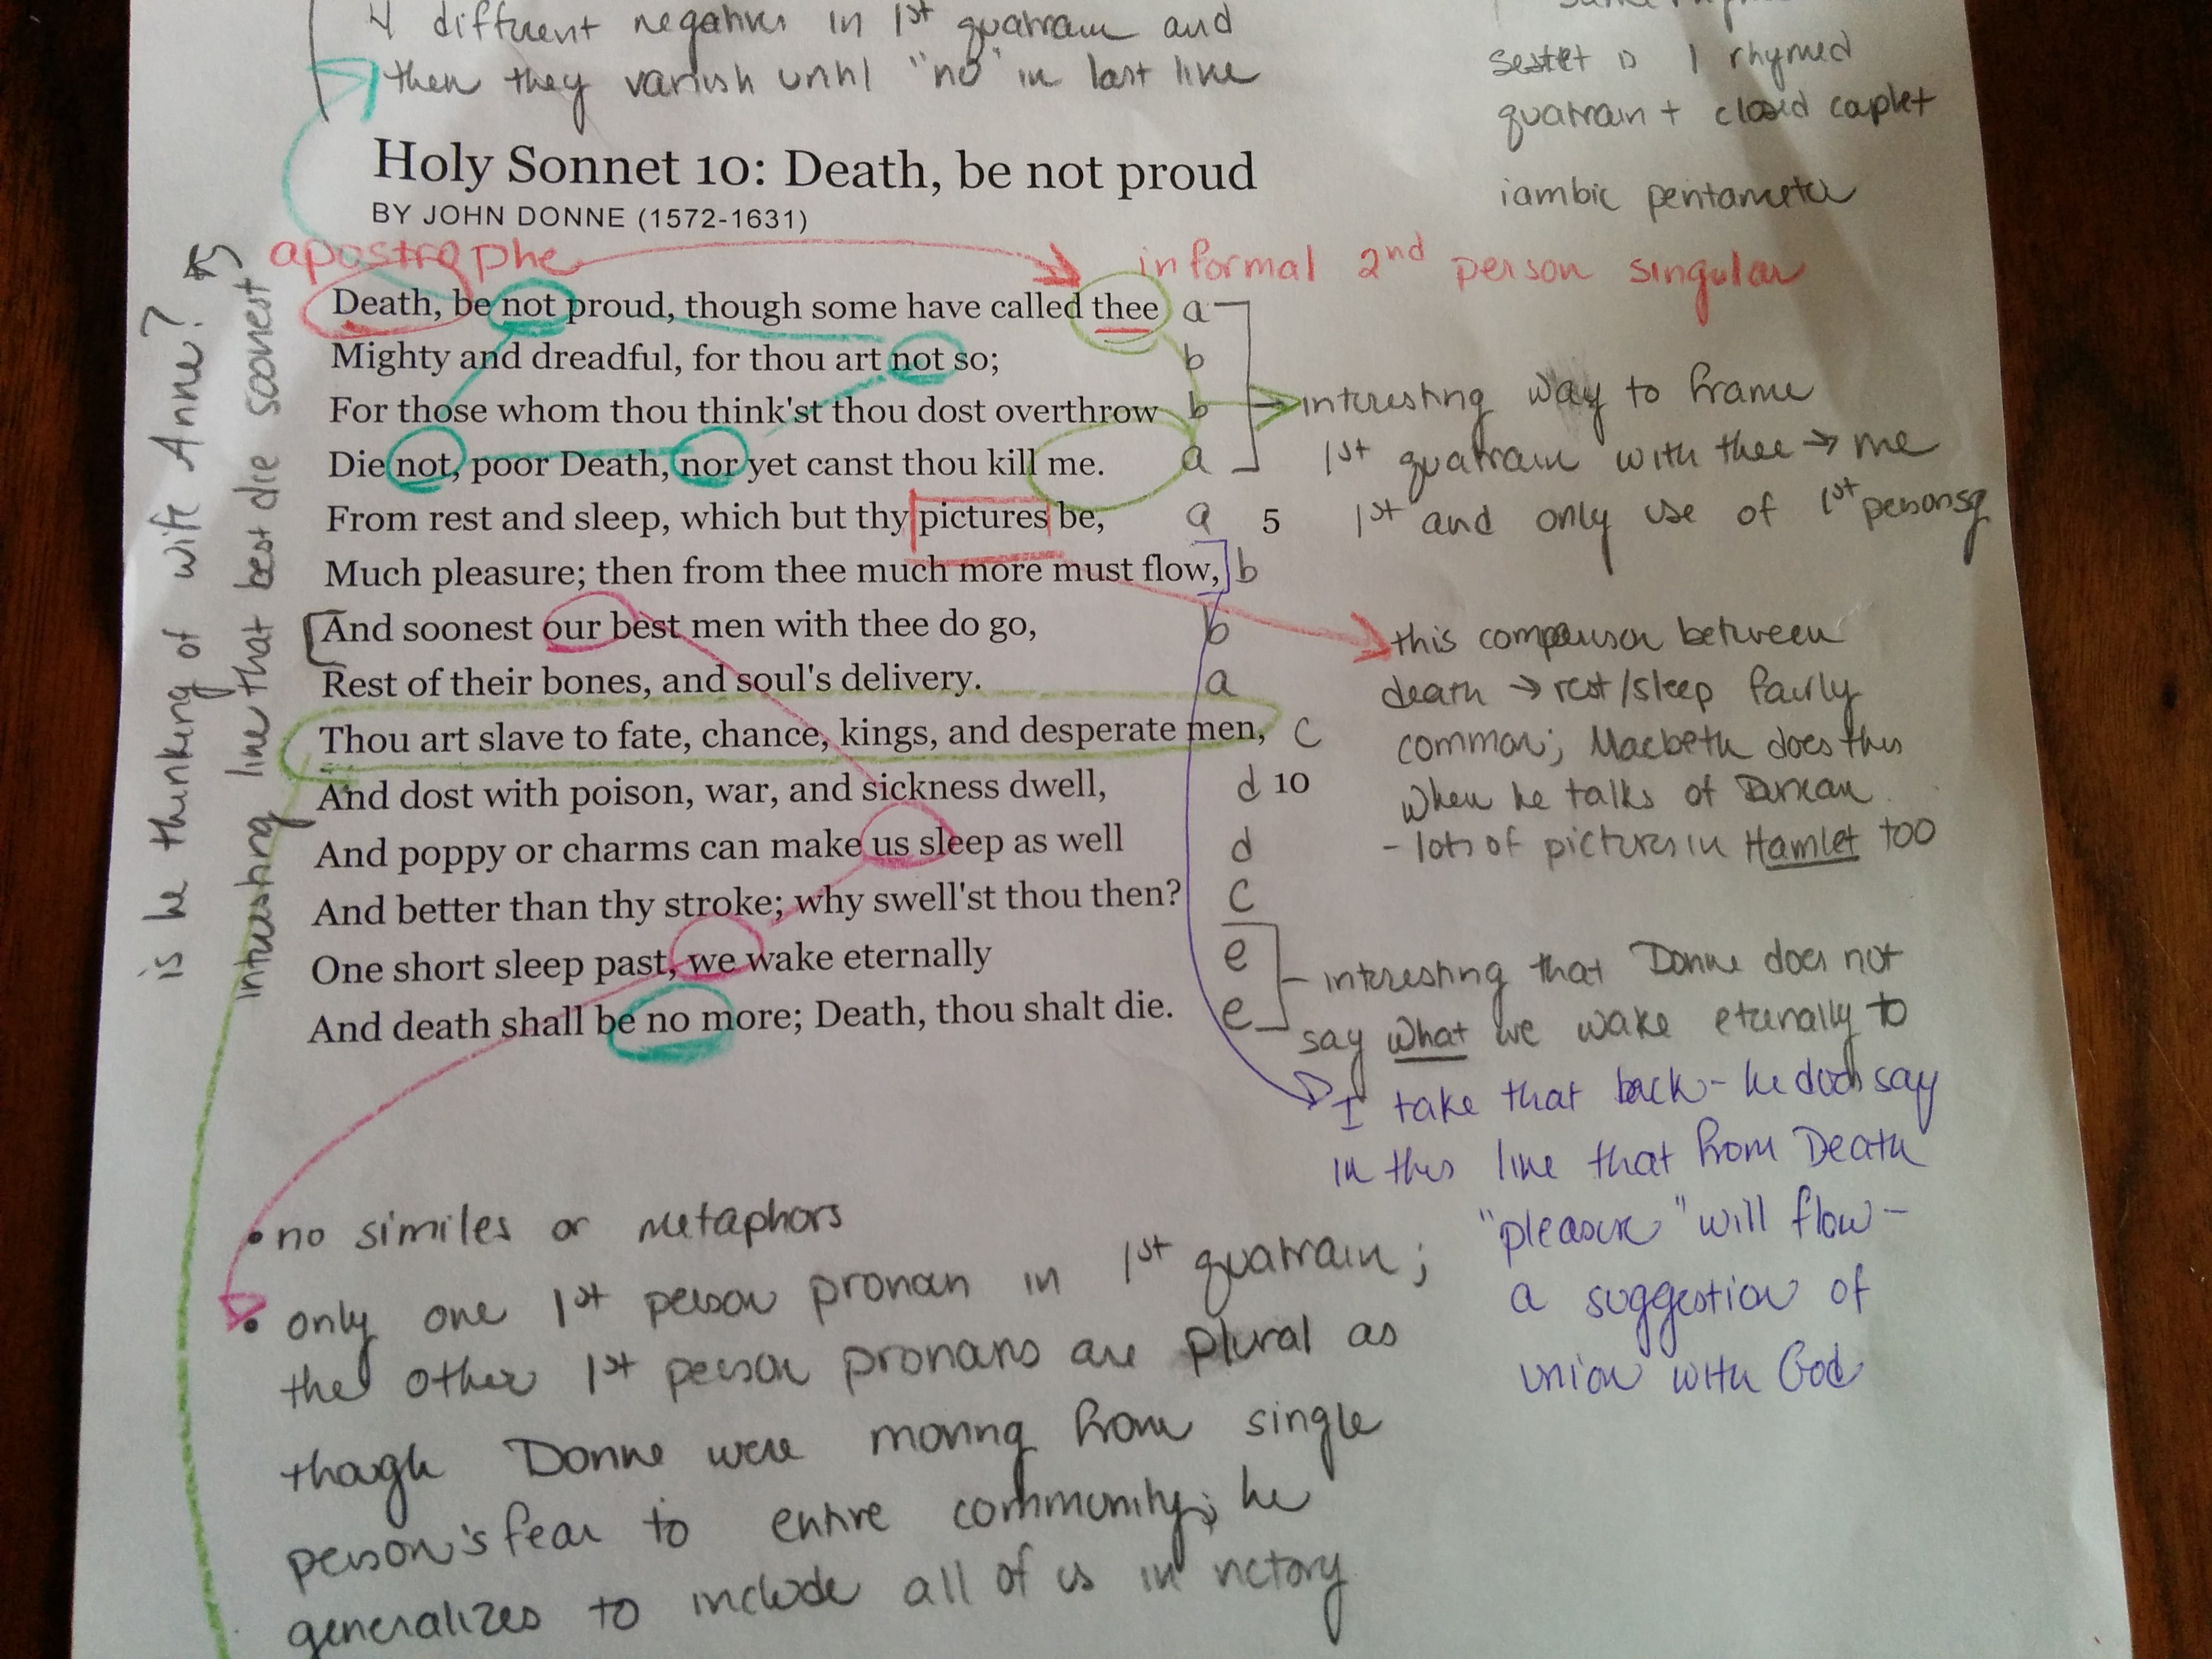 4 different negatives in 1st quatrain and
then they vanish until "no" in last line
sestet is 1 rhymed
quatrain + closed couplet
iambic pentameter
Holy Sonnet 10: Death, be not proud
BY JOHN DONNE (1572-1631)
apostrophe
informal 2nd person singular
Death, be not proud, though some have called thee a
Mighty and dreadful, for thou art not so; b
For those whom thou think'st thou dost overthrow b
Die not, poor Death, nor yet canst thou kill me. a
From rest and sleep, which but thy pictures be, a 5
Much pleasure; then from thee much more must flow, b
And soonest our best men with thee do go, b
Rest of their bones, and soul's delivery. a
Thou art slave to fate, chance, kings, and desperate men, c
And dost with poison, war, and sickness dwell, d 10
And poppy or charms can make us sleep as well d
And better than thy stroke; why swell'st thou then? c
One short sleep past, we wake eternally e
And death shall be no more; Death, thou shalt die. e
interesting way to frame
1st quatrain with thee → me
1st and only use of 1st person sg
this comparison between
death → rest/sleep fairly
common; Macbeth does this
when he talks of Duncan
- lots of pictures in Hamlet too
interesting that Donne does not
say what we wake eternally to
I take that back - he does say
in this line that from Death
"pleasure" will flow -
a suggestion of
union with God
is he thinking of wife Anne?
interesting line that best die soonest
• no similes or metaphors
• only one 1st person pronoun in 1st quatrain;
the other 1st person pronouns are plural as
though Donne were moving from single
person's fear to entire community; he
generalizes to include all of us in victory